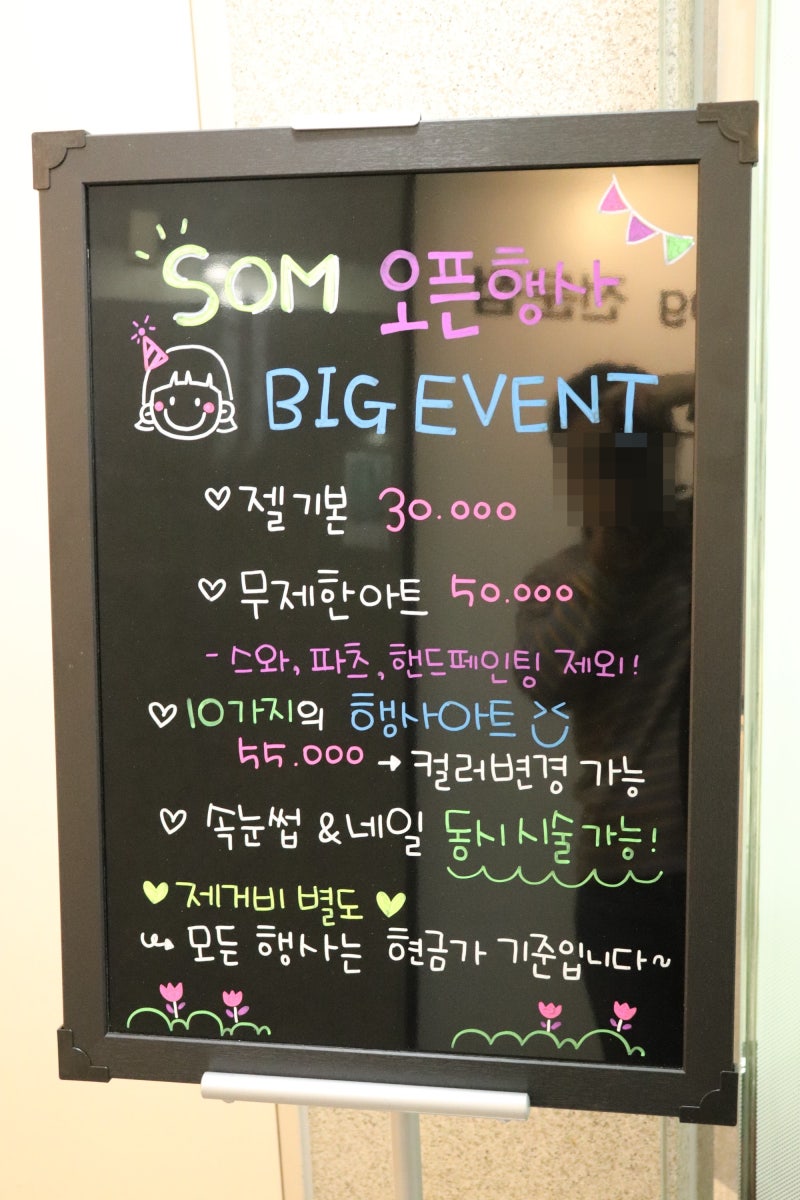 SOM 오픈행사
BIG EVENT
♡ 젤기본 30.000
♡ 무제한아트 50.000
- 스와, 파츠, 핸드페인팅 제외!
♡ 10가지의 행사아트
55.000 → 컬러변경 가능
♡ 속눈썹 & 네일 동시시술가능!
♥ 제거비 별도 ♥
↪ 모든 행사는 현금가 기준입니다~